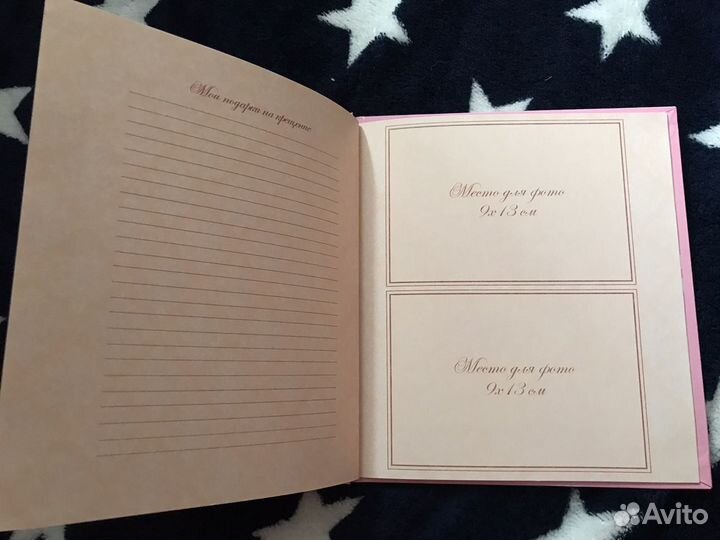 Мои подарки на крещение
Место для фото
9х13 см
Место для фото
9х13 см
Avito